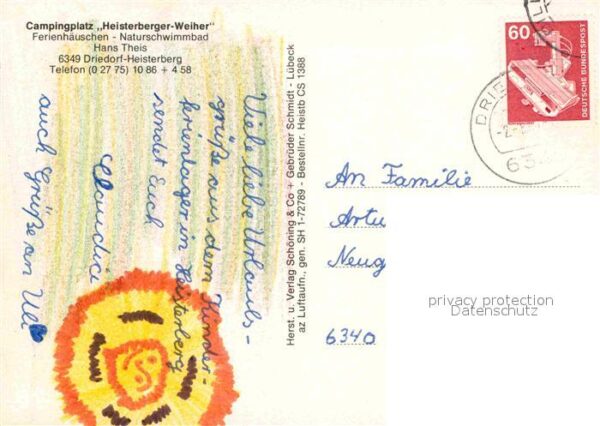 Campingplatz „Heisterberger-Weiher"
Ferienhäuschen - Naturschwimmbad
Hans Theis
6349 Driedorf-Heisterberg
Telefon (0 27 75) 10 86 + 4 58
Viele liebe Urlaubs-
grüße aus dem Kinder-
ferienlager in Heisterberg
sendet Euch
Claudia
auch Grüße an Uli
Herst. u. Verlag Schöning & Co + Gebrüder Schmidt - Lübeck
az Luftaufn., gen. SH 1-72789 - Bestellnr. Heistb CS 1388
60
DEUTSCHE BUNDESPOST
DRIE
63
An Familie
Artu
Neug
6340
privacy protection
Datenschutz